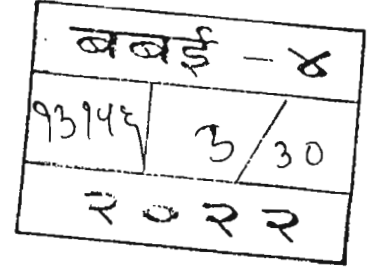 बबई - ४
१३१५६ 3/30
२०२२